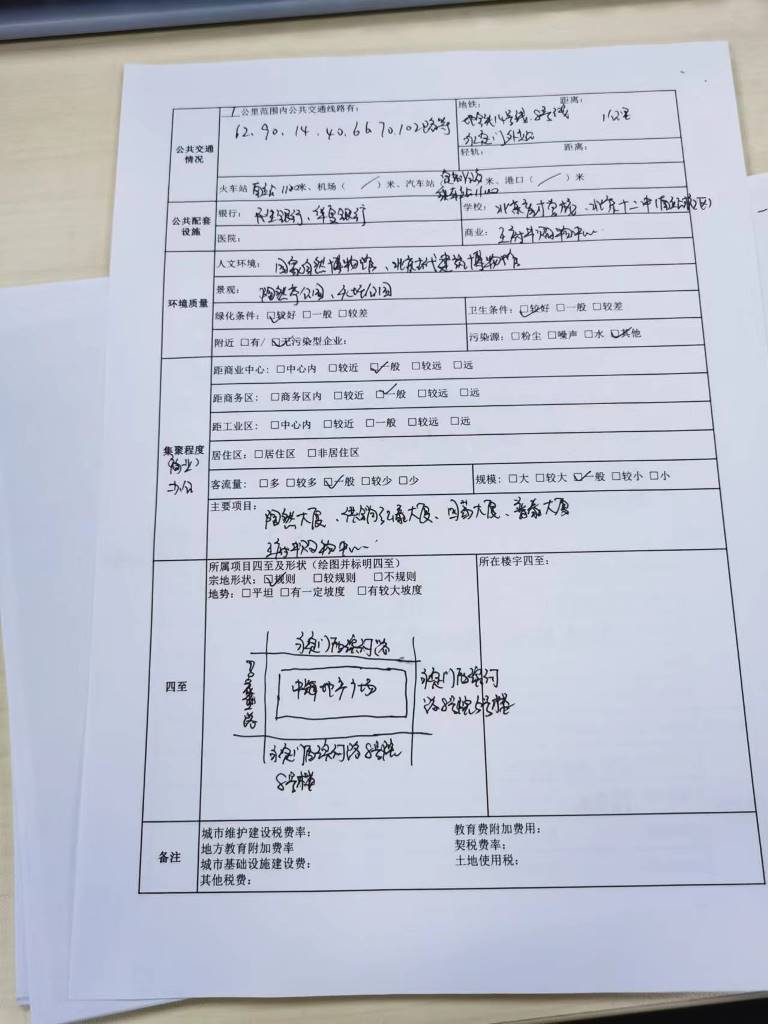 1公里范围内公共交通线路有:
62、90、14、40、66、70、102路等
地铁: 距离:
地铁14号线、8号线 1公里
永定门外站
轻轨: 距离:
公共交通
情况
火车站 1100米、机场(/)米、汽车站 米、港口(/)米
公共配套
设施
银行: 民生银行、华夏银行
学校: 北京十二中
医院:
商业: 王府井购物中心
环境质量
人文环境: 国家自然博物馆、北京古代建筑博物馆
景观: 陶然亭公园、天坛公园
绿化条件: ☑较好 □一般 □较差
卫生条件: ☑较好 □一般 □较差
附近 □有/☑无污染型企业:
污染源: □粉尘 □噪声 □水 ☑其他
集聚程度
(商业)
办公
距商业中心: □中心内 □较近 ☑一般 □较远 □远
距商务区: □商务区内 □较近 ☑一般 □较远 □远
距工业区: □中心内 □较近 □一般 □较远 □远
居住区: □居住区 □非居住区
客流量: □多 □较多 ☑一般 □较少 □少
规模: □大 □较大 ☑一般 □较小 □小
主要项目: 陶然大厦、供销弘泰大厦、国药大厦、普泰大厦
王府井购物中心
四至
所属项目四至及形状(绘图并标明四至)
宗地形状: ☑规则 □较规则 □不规则
地势: □平坦 □有一定坡度 □有较大坡度
所在楼宇四至:
永定门西滨河路
中海地产广场
永定门西滨河
路8号院5号楼
永定门西滨河路8号院
8号楼
备注
城市维护建设税费率:
教育费附加费用:
地方教育附加费率
契税费率:
城市基础设施建设费:
土地使用税:
其他税费: